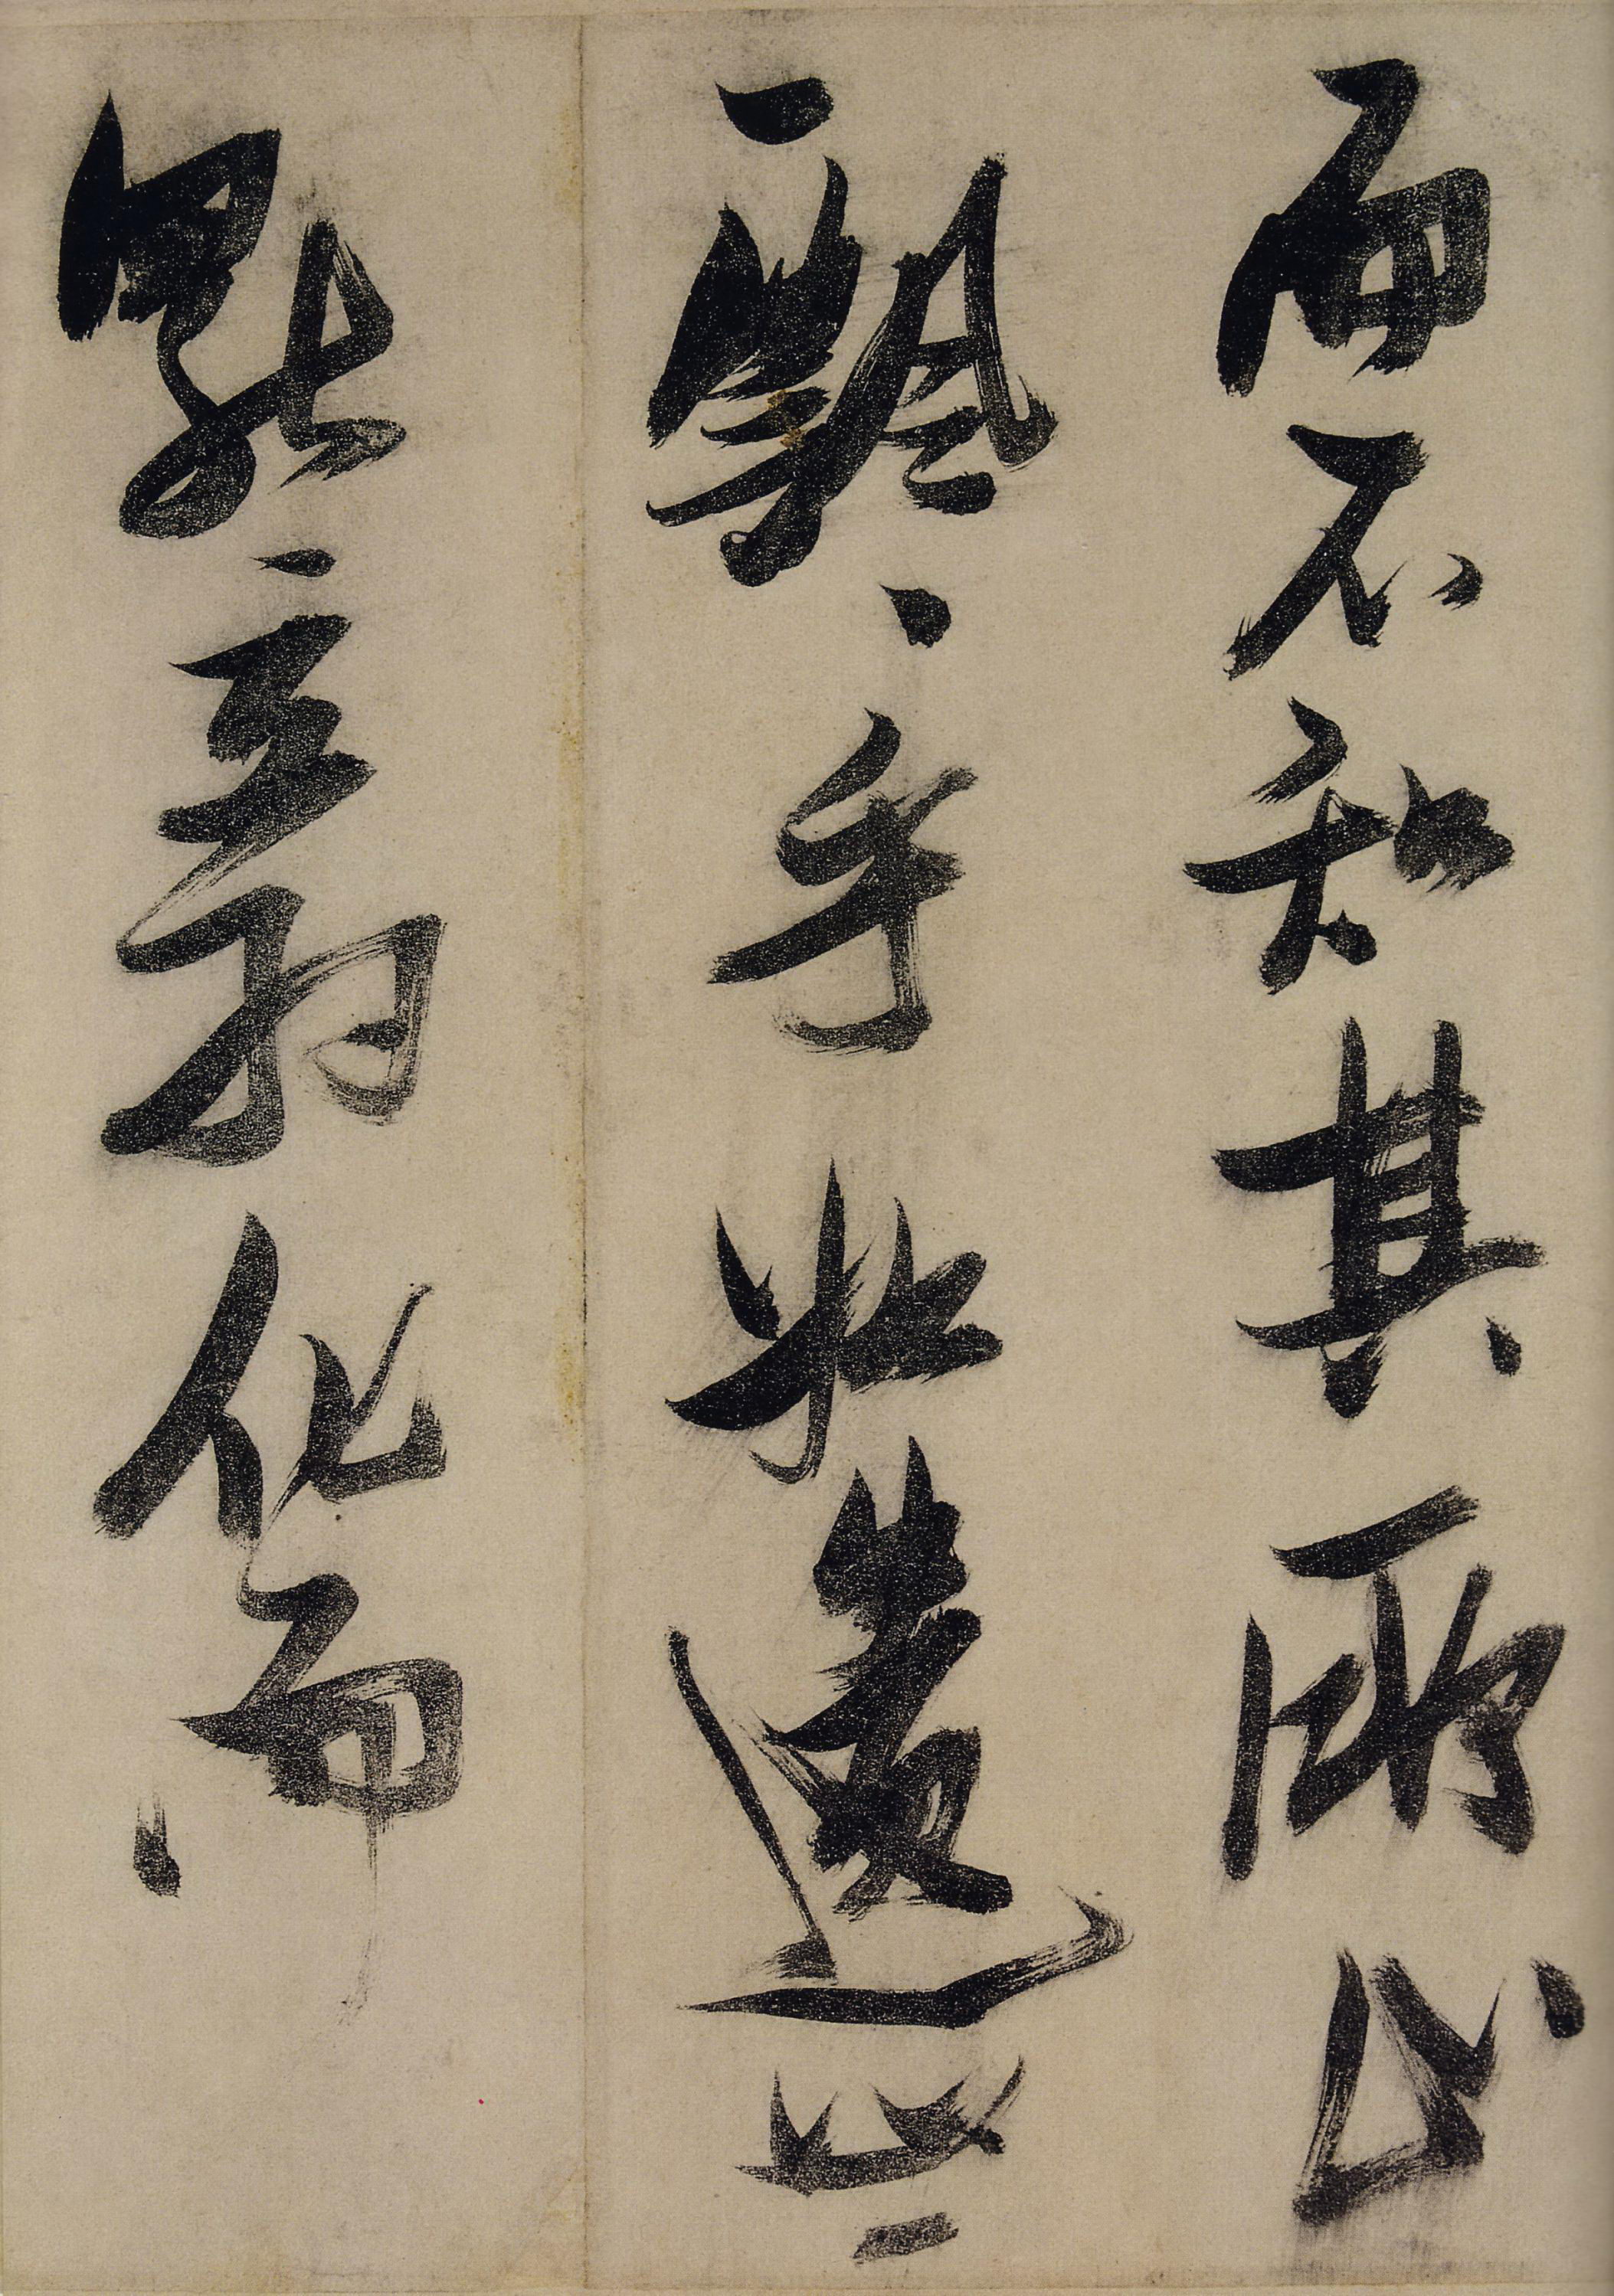 而不知其所止
飄〻乎如遺世
獨立羽化而